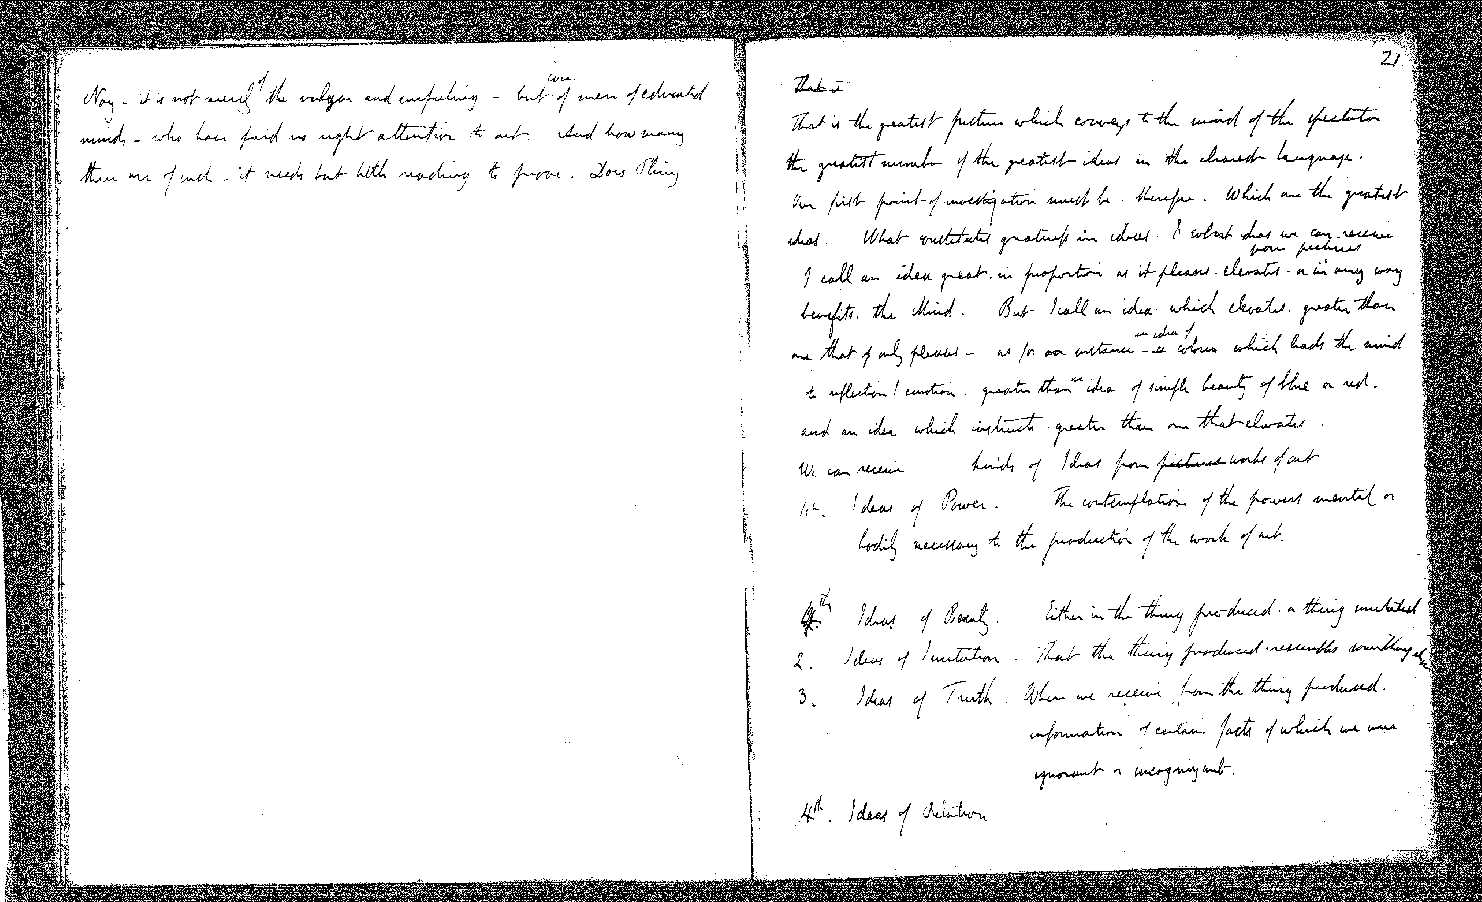 Nay - it is not merely of the vulgar and unfeeling - but even of men of educated
minds - who have paid no right attention to art. And how many
there are of such - it needs but little reading to prove. Does Pliny
21
That is
That is the greatest picture which conveys to the mind of the spectator
the greatest number of the greatest ideas in the clearest language.
Our first point of investigation must be - therefore. Which are the greatest
ideas. What constitutes greatness in ideas. & what ideas we can receive
from pictures
I call an idea great - in proportion as it pleases - elevates - or in any way
benefits. the Mind. But I call an idea which elevates. greater than
one that only pleases - as for instance - an idea of colour which leads the mind
to reflection / emotion. greater than an idea of simple beauty of blue or red.
and an idea which instructs greater than one that elevates.
We can receive kinds of Ideas from pictures works of art
1st. Ideas of Power. The contemplation of the powers mental or
bodily necessary to the production of the work of art.
Ideas of Beauty. Either in the thing produced. or thing imitated
2. Ideas of Imitation - That the thing produced resembles something else
3. Ideas of Truth. When we receive from the thing produced.
information of certain facts of which we were
ignorant or incognizant.
4th. Ideas of Relation